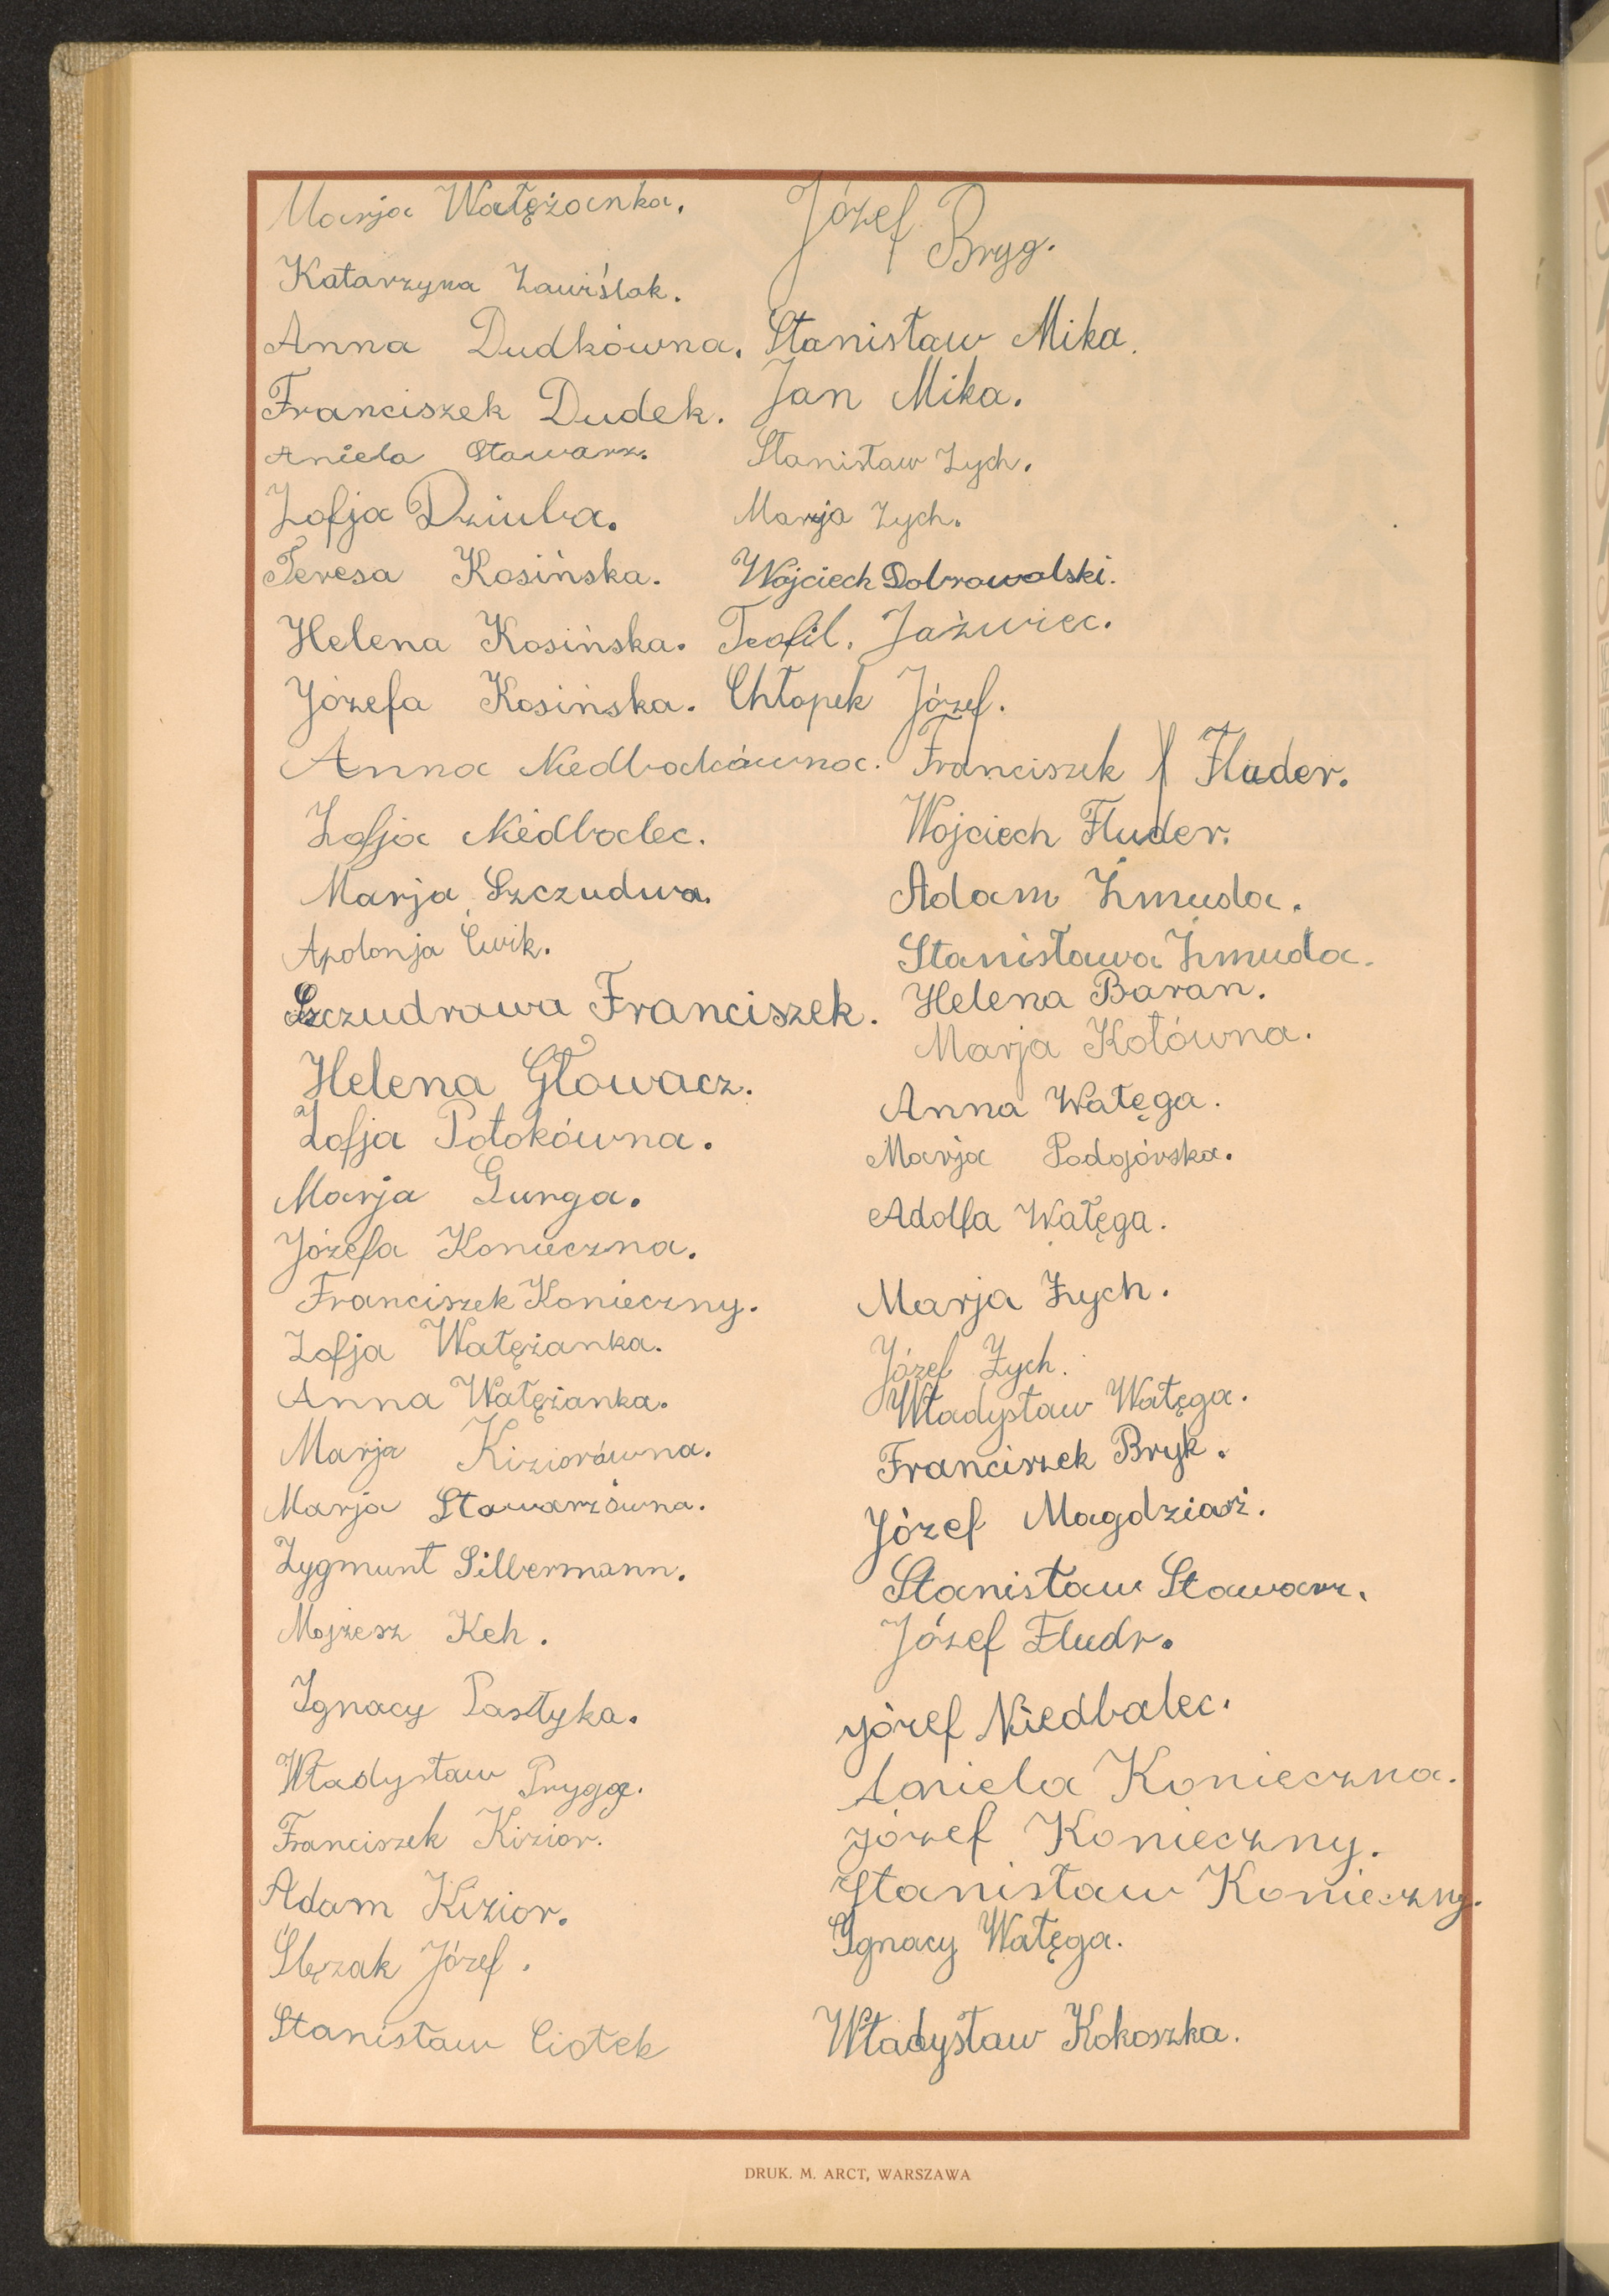 Marja Wałężanka.
Katarzyna Zawiślak.
Anna Dudkówna.
Franciszek Dudek.
Aniela Stawarz.
Zofja Dziuba.
Teresa Kosińska.
Helena Kosińska.
Józefa Kosińska.
Anna Niedbalcówna.
Zofja Niedbalec.
Marja Szczudwa.
Apolonja Ćwik.
Szczudrawa Franciszek.
Helena Głowacz.
Zofja Potokówna.
Marja Gurga.
Józefa Konieczna.
Franciszek Konieczny.
Zofja Wałężanka.
Anna Wałężanka.
Marja Kiziorówna.
Marja Stawarzówna.
Zygmunt Silbermann.
Mojżesz Keh.
Ignacy Pastyka.
Władysław Pryga.
Franciszek Kizior.
Adam Kizior.
Ślęzak Józef.
Stanisław Ciołek
Józef Bryg.
Stanisław Mika.
Jan Mika.
Stanisław Zych.
Marja Zych.
Wojciech Dobrowolski.
Teofil. Jaźwiec.
Chłopek Józef.
Franciszek Fluder.
Wojciech Fluder.
Adam Żmuda.
Stanisława Żmuda.
Helena Baran.
Marja Kotówna.
Anna Wałęga.
Marja Podgórska.
Adolfa Wałęga.
Marja Zych.
Józef Zych.
Władysław Wałęga.
Franciszek Bryk.
Józef Magdziarz.
Stanisław Stawarz.
Józef Fludr.
Józef Niedbalec.
Aniela Konieczna.
Józef Konieczny.
Stanisław Konieczny.
Ignacy Wałęga.
Władysław Kokoszka.
DRUK. M. ARCT, WARSZAWA